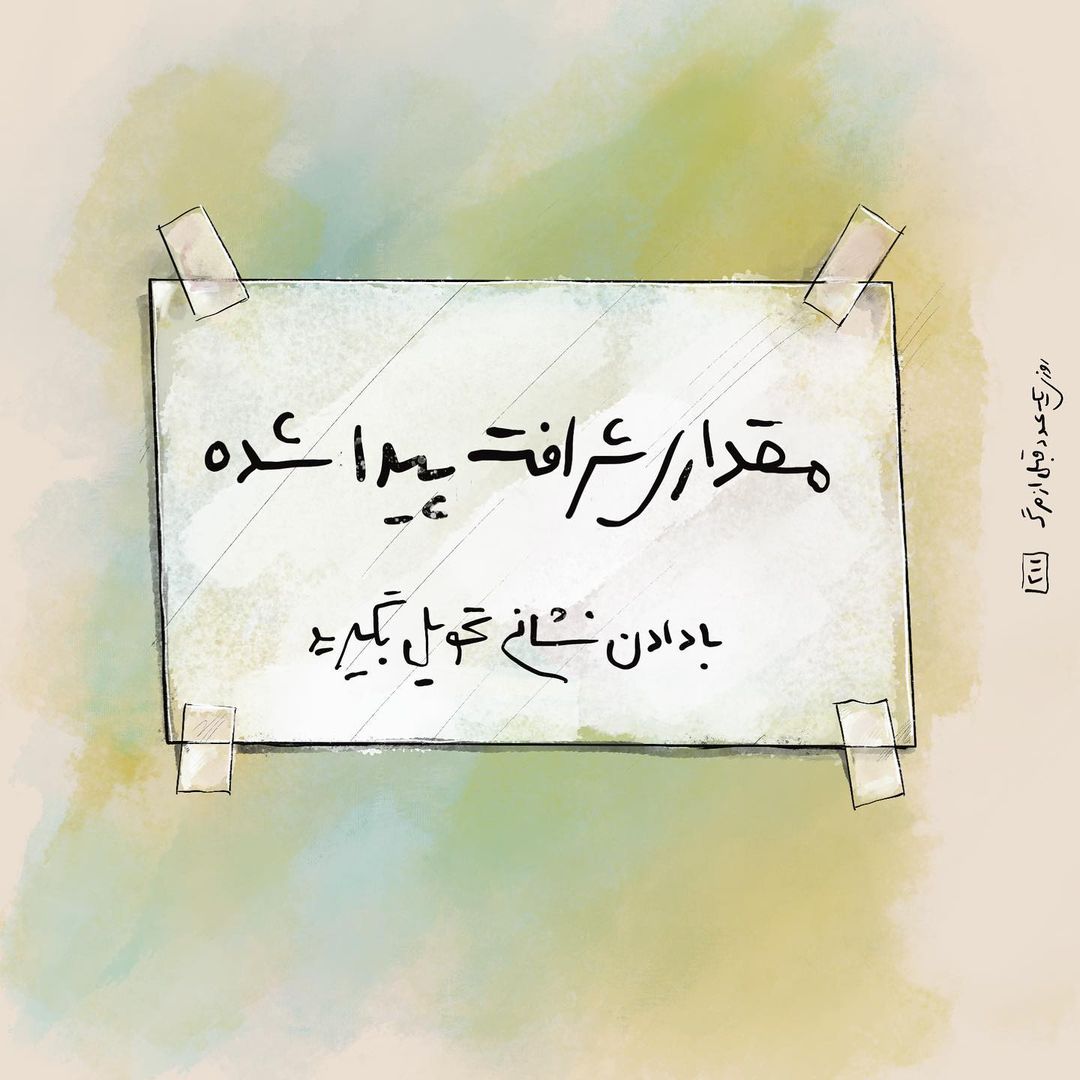 مقداری شرافت پیدا شده
با دادن نشانی تحویل بگیرید
روزی یک عدد قبل از مرگ
۲۱۱